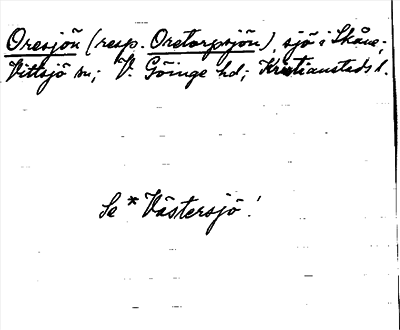 Oresjön (resp. Oretorpsjön), sjö i Skåne;
Vittsjö sn; V. Göinge hd; Kristianstads l.
Se *Västersjö!